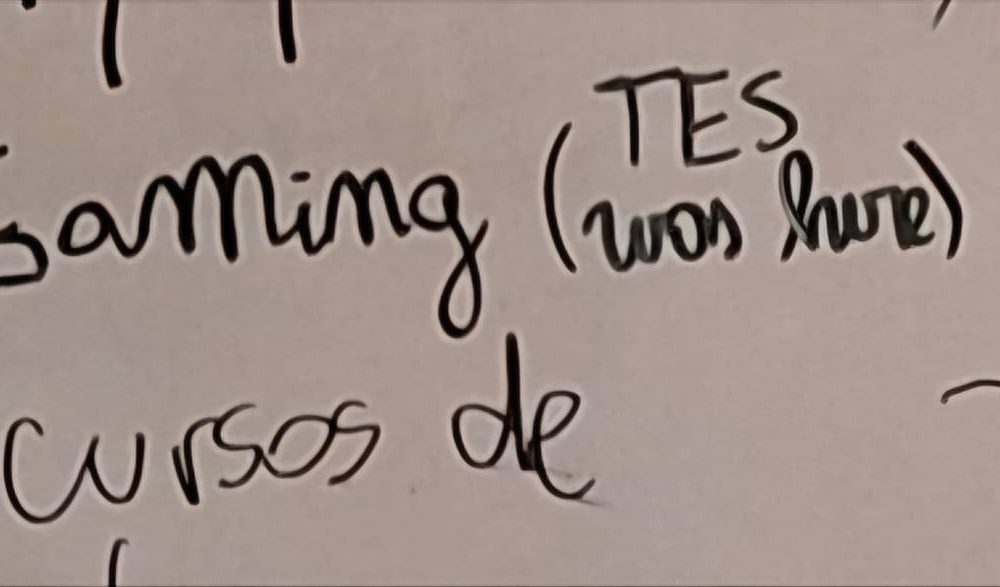 Gaming (TES
was here)
cursos de